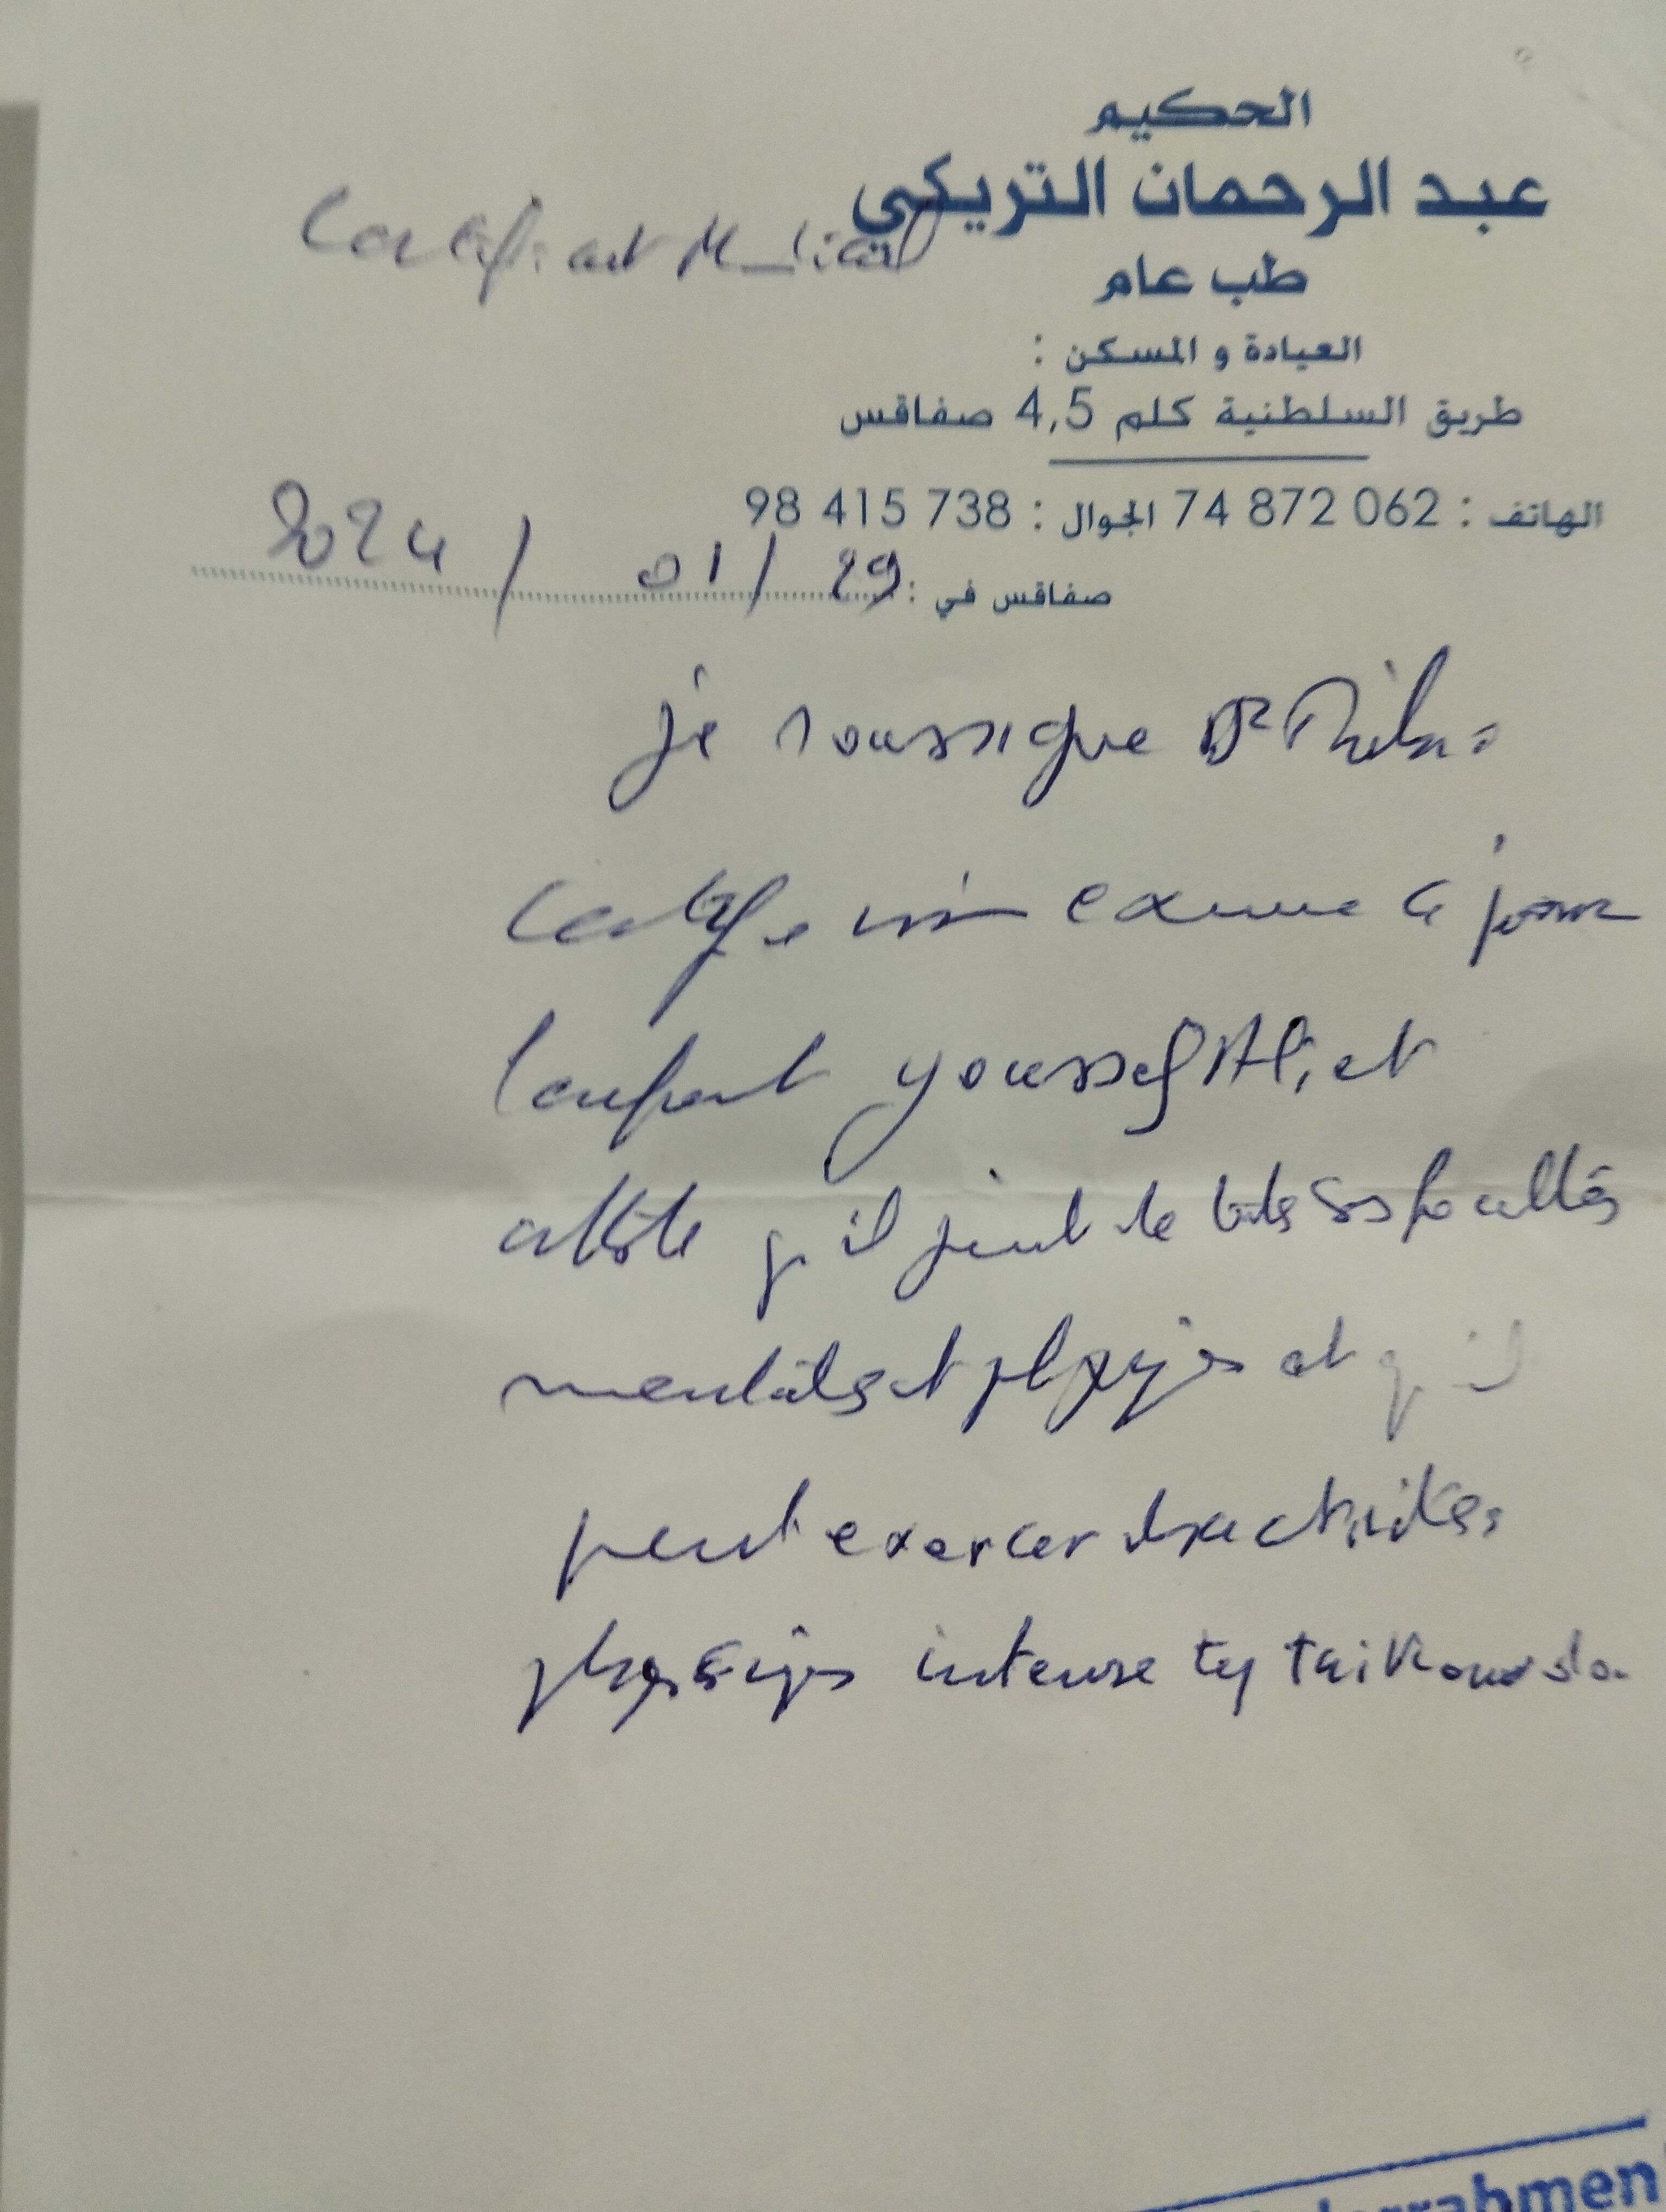 الحكيم
عبد الرحمان التريكي
Certificat Medical
طب عام
العيادة و المسكن :
طريق السلطنية كلم 4,5 صفاقس
الهاتف : 74 872 062 الجوال : 98 415 738
صفاقس في : 29 / 01 / 2024
je soussigne Dr
Certifie avoir examine ce jour
l'enfant youssef Ali et
atteste qu'il jouit de toutes ses facultés
mentales et physiques et qu'il
peut exercer des activités
physiques intense taikowdo